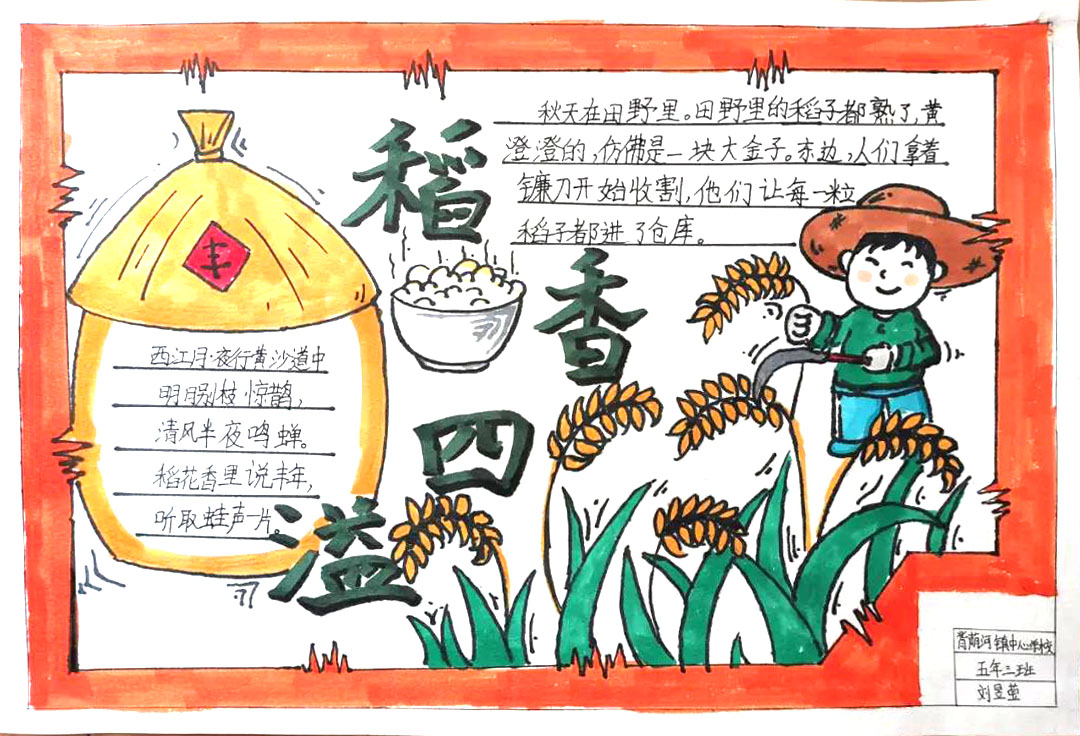 稻香四溢
秋天在田野里。田野里的稻子都熟了,黄
澄澄的,仿佛是一块大金子。木边,人们拿着
镰刀开始收割,他们让每一粒
稻子都进了仓库。
丰
西江月·夜行黄沙道中
明月别枝惊鹊,
清风半夜鸣蝉。
稻花香里说丰年,
听取蛙声一片。
青荫河镇中心学校
五年三班
刘昱莹